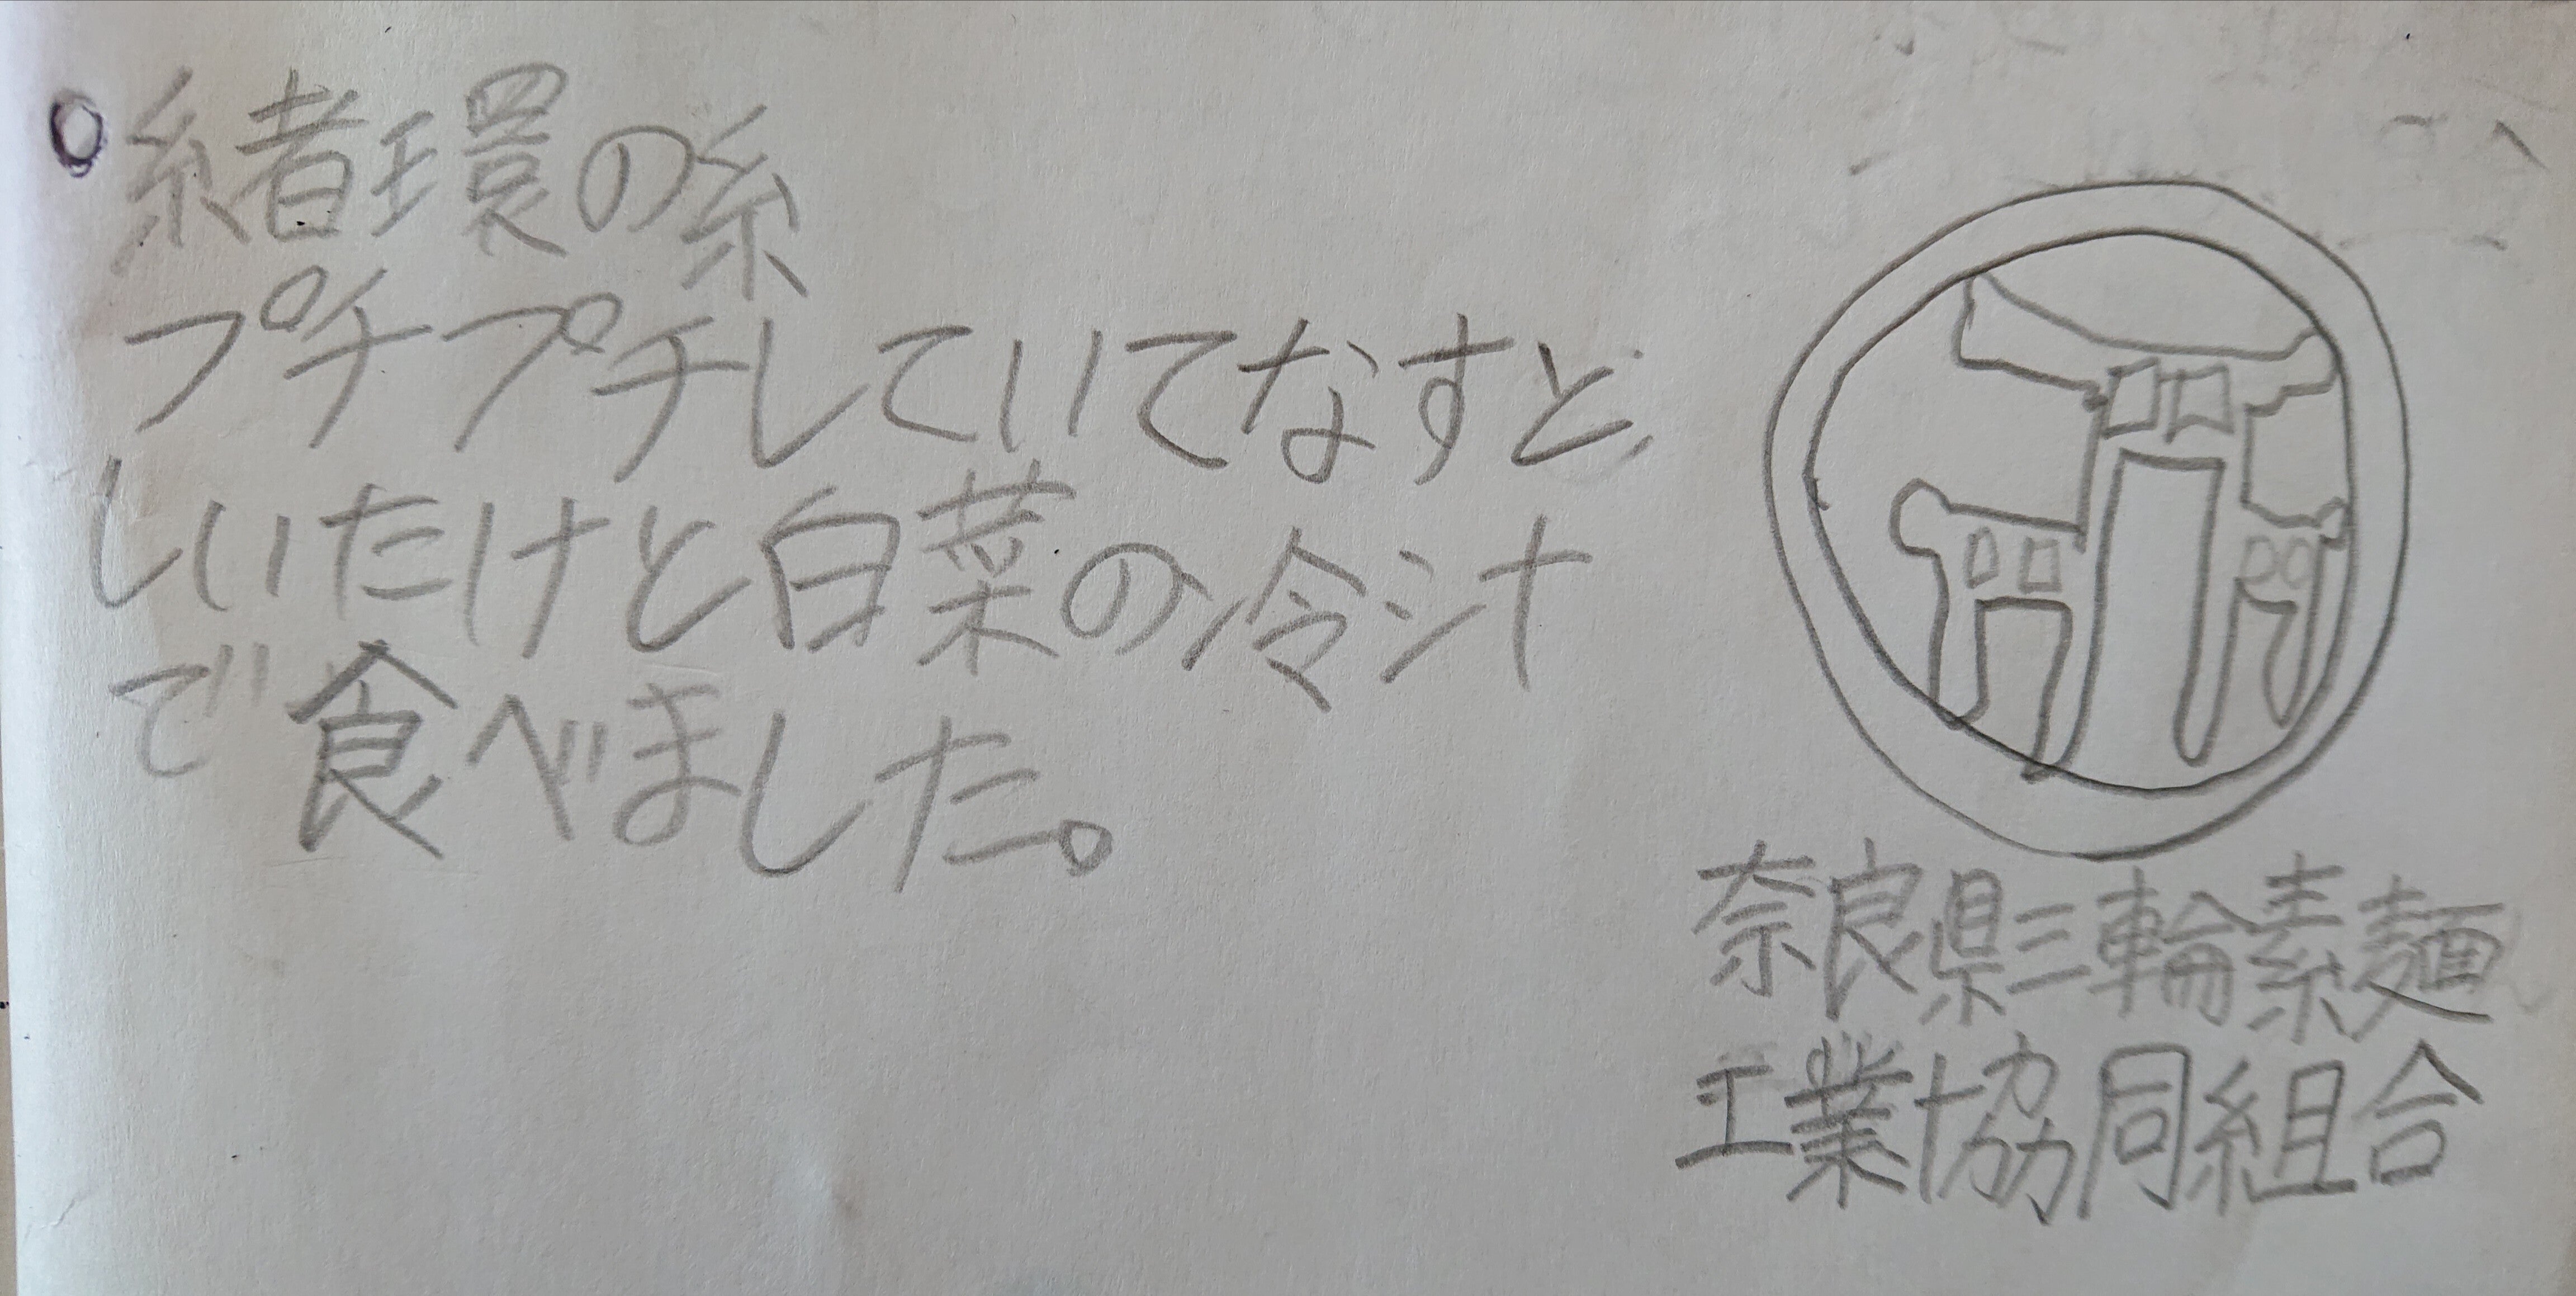 緒環の糸
プチプチしていてなすと、
しいたけと白菜の冷汁
で食べました。
奈良県三輪素麺
工業協同組合